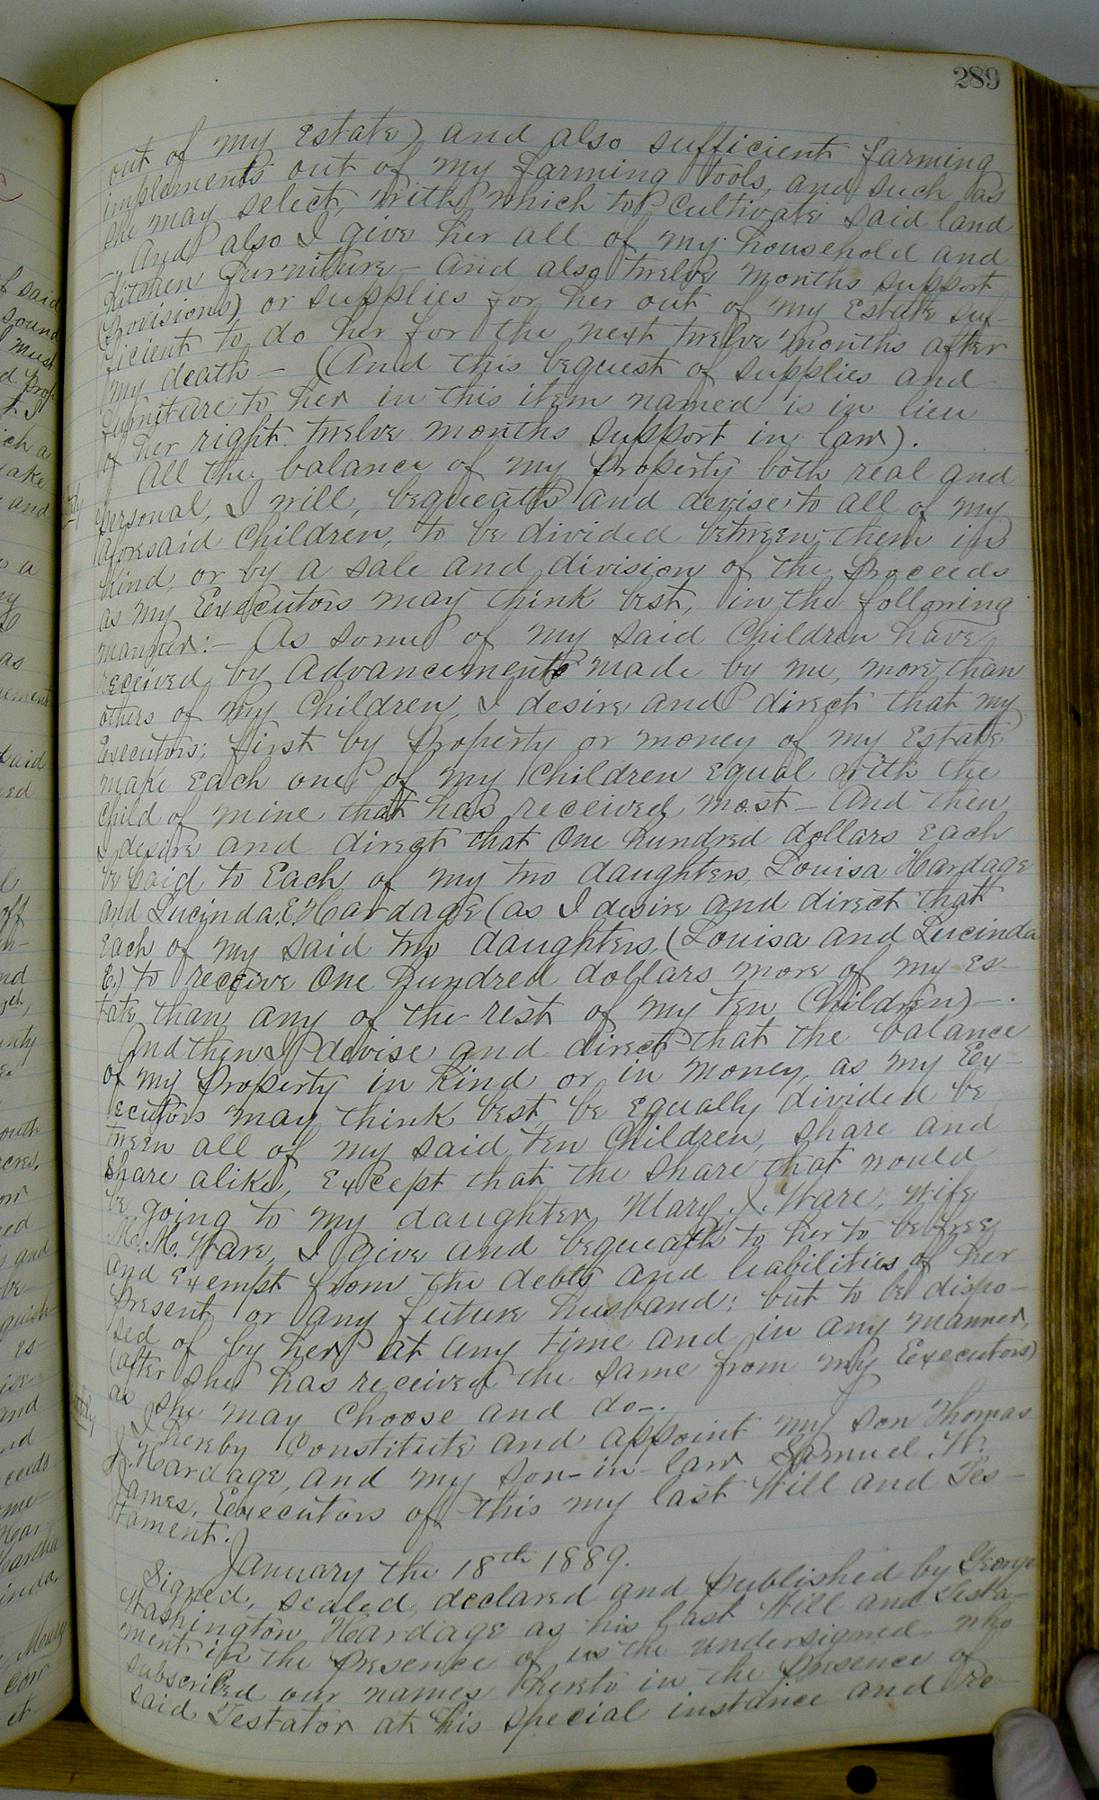 289
out of my Estate) and also sufficient farming
implements out of my farming tools, and such as
she may select, with which to cultivate said land
— And also I give her all of my household and
Kitchen furniture — And also twelve months support
(Provisions) or supplies for her out of my Estate suf-
ficient to do her for the next twelve months after
my death — (And this bequest of supplies and
furniture to her in this item named is in lieu
of her right twelve months support in law).
All the balance of my property both real and
personal, I will, bequeath and devise to all of my
aforesaid Children, to be divided between them in
Kind, or by a sale and division of the proceeds
as my Executors may think best, in the following
manner:— As some of my said Children have
received by advancements made by me, more than
others of my Children, I desire and direct that my
Executors; first by Property or money of my Estate
make each one of my Children equal with the
Child of mine that has received most — And then
I desire and direct that One hundred dollars each
be paid to Each of my two daughters, Louisa Hardage
and Lucinda E. Hardage (as I desire and direct that
Each of my said two daughters, (Louisa and Lucinda
E.) to receive One hundred dollars more of my Es-
tate than any of the rest of my ten Children) —.
And then I devise and direct that the balance
of my Property in Kind or in money, as my Ex-
ecutors may think best be Equally divided be
tween all of my said ten Children, share and
share alike, Except that the share that would
be going to my daughter Mary J. Ware, wife
M. M. Ware, I give and bequeath to her to be free
and exempt from the debts and liabilities of her
present or any future husband; but to be dispo-
sed of by her at any time and in any manner,
(after she has received the same from my Executors)
as she may choose and do—.
I hereby Constitute and appoint my son Thomas
J. Hardage, and my son-in-law Samuel W.
James, Executors of this my last Will and Tes-
tament.
January the 18th 1889.
Signed, sealed, declared and published by George
Washington Hardage as his last Will and Testa-
ment in the presence of us the undersigned who
subscribed our names hereto in the presence of
said Testator at his special instance and re-